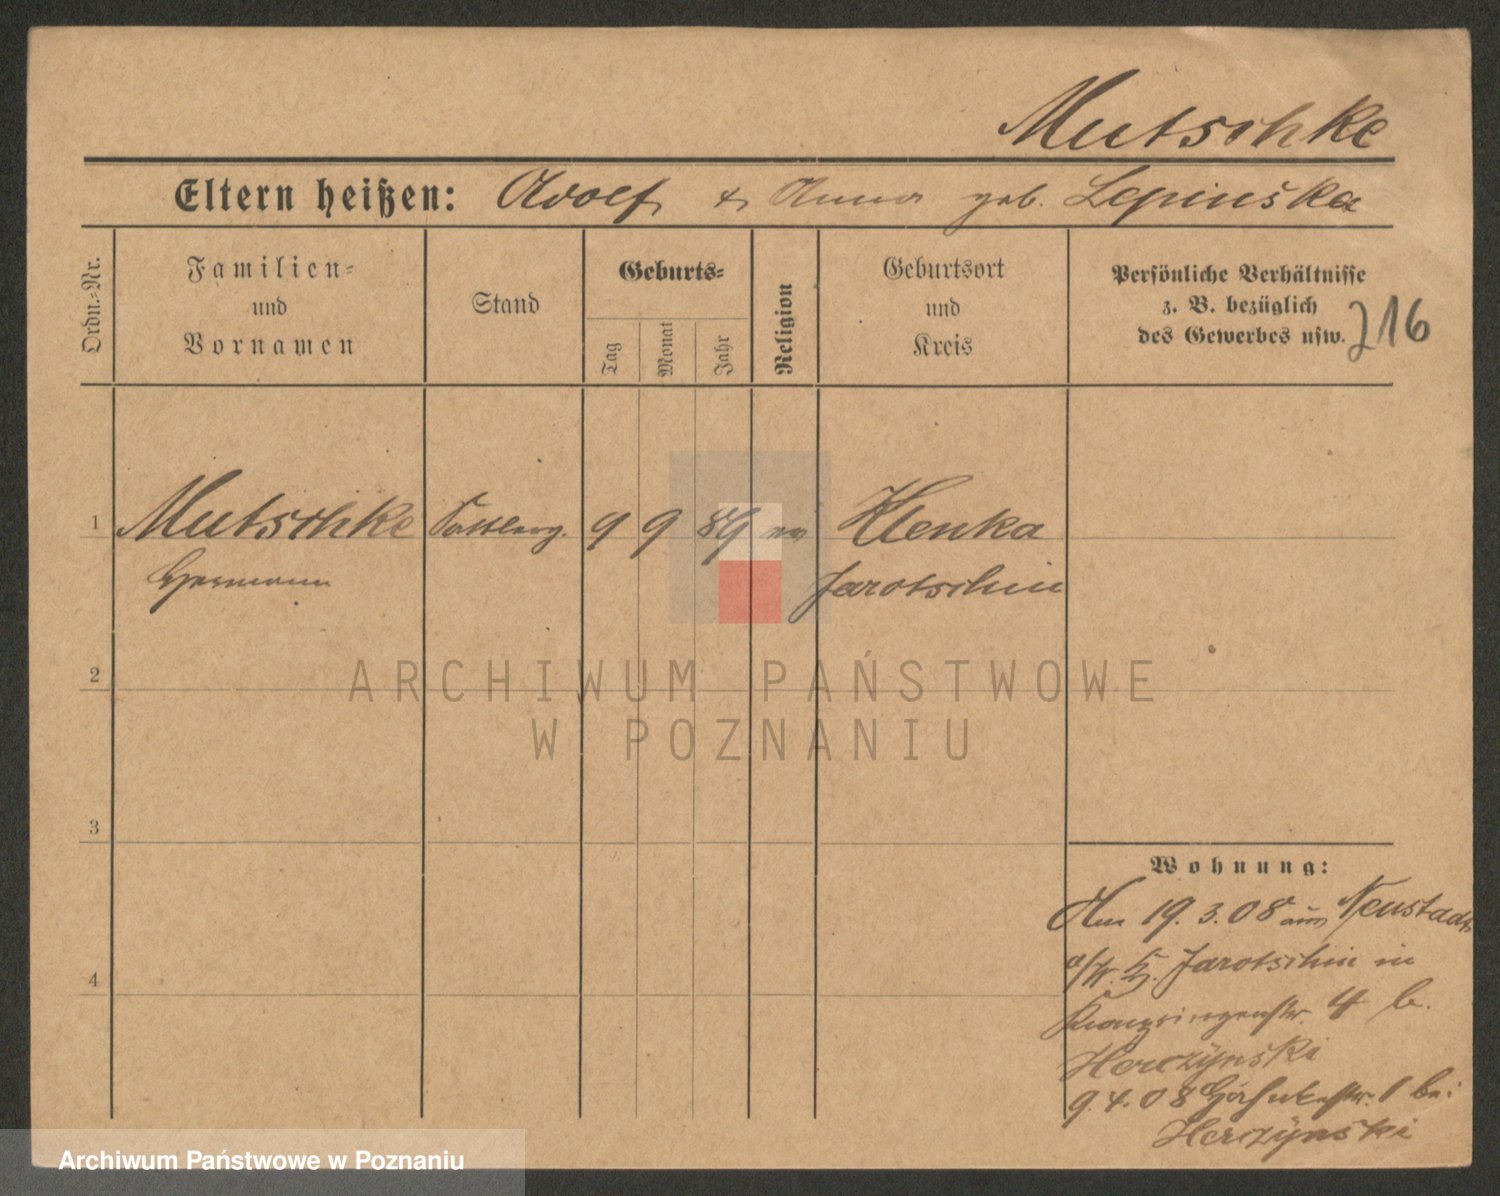 Mutschke
Eltern heißen: Adolf & Anna geb. Lepinska
Ordn.-Nr.
Familien-
und
Vornamen
Stand
Geburts-
Tag
Monat
Jahr
Religion
Geburtsort
und
Kreis
Persönliche Verhältnisse
z. B. bezüglich
des Gewerbes usw.
216
1
Mutschke
Hermann
Sattlerg.
9
9
89
ev
Klenka
Jarotschin
2
ARCHIWUM PAŃSTWOWE
W POZNANIU
3
4
Wohnung:
Am 19. 3. 08 aus Neustadt
a/W. Jarotschin in
Kronprinzenstr. 4 b.
Herczynski
9.4.08 1 bei
Herczynski
Archiwum Państwowe w Poznaniu